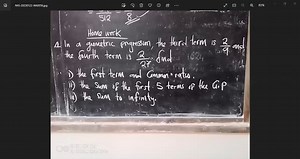 512 8
Home work
In a geometric progression, the third term is 2/9 and
the fourth term is 2/27 find
i) the first term and Common ratio.
ii) the Sum of the first 5 terms of the G.P
iii) the Sum to infinity.